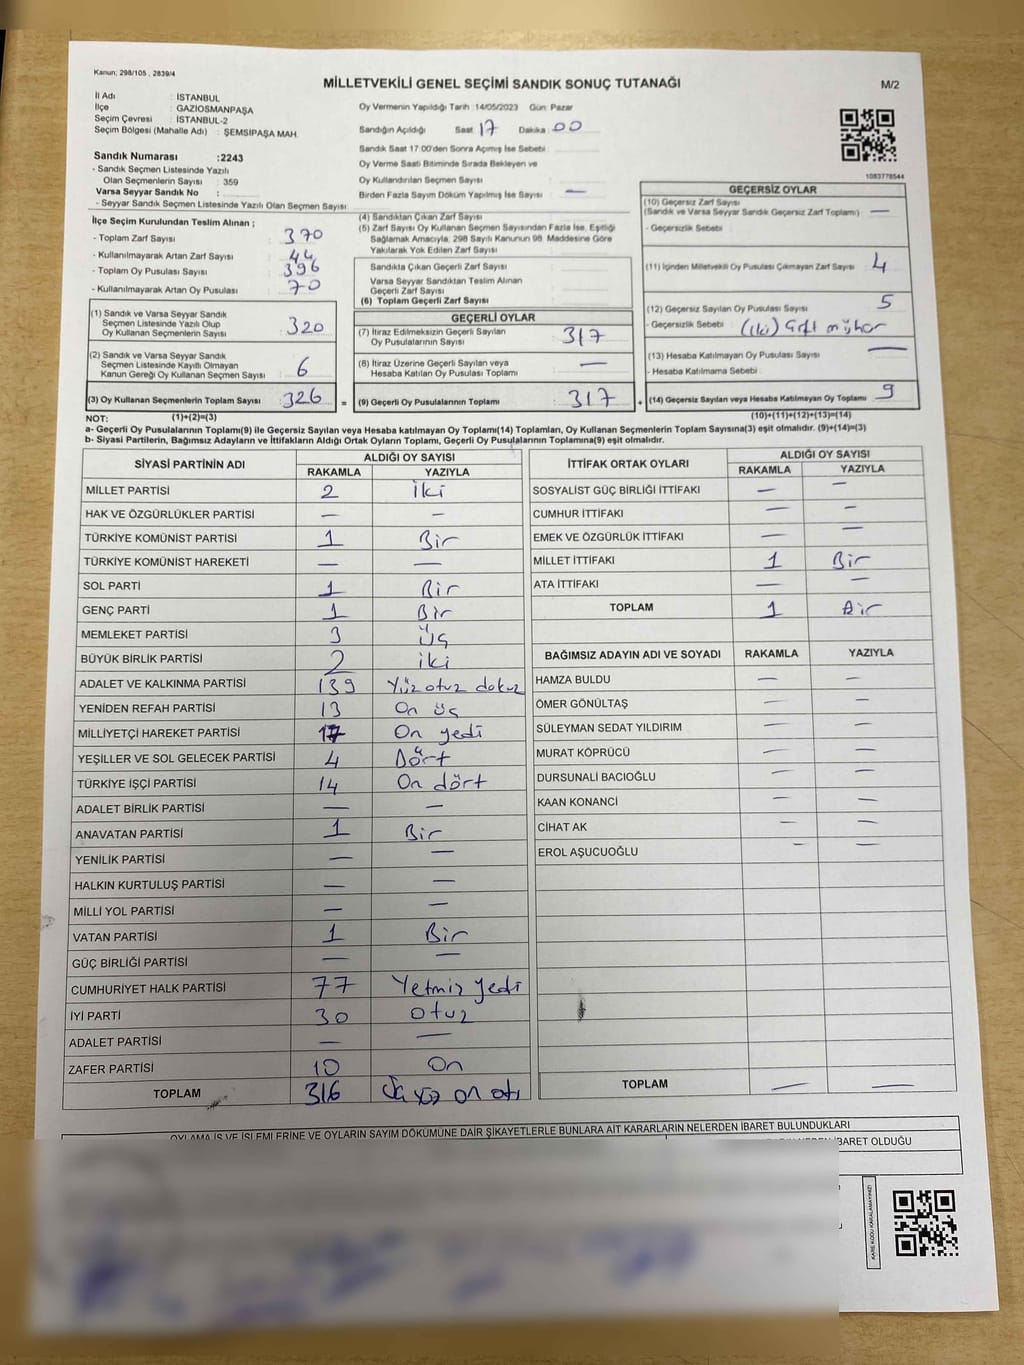 Kanun; 298/105 , 2839/4
MİLLETVEKİLİ GENEL SEÇİMİ SANDIK SONUÇ TUTANAĞI
M/2
İl Adı : İSTANBUL
İlçe : GAZİOSMANPAŞA
Seçim Çevresi : İSTANBUL-2
Seçim Bölgesi (Mahalle Adı) : ŞEMSİPAŞA MAH.
Sandık Numarası :2243
- Sandık Seçmen Listesinde Yazılı
Olan Seçmenlerin Sayısı : 359
Varsa Seyyar Sandık No :
- Seyyar Sandık Seçmen Listesinde Yazılı Olan Seçmen Sayısı:
Oy Vermenin Yapıldığı Tarih :14/05/2023 Gün: Pazar
Sandığın Açıldığı Saat 17 Dakika 00
Sandık Saat 17:00'den Sonra Açılmış İse Sebebi :
Oy Verme Saati Bitiminde Sırada Bekleyen ve
Oy Kullandırılan Seçmen Sayısı :
Birden Fazla Sayım Döküm Yapılmış İse Sayısı : —
1083778544
İlçe Seçim Kurulundan Teslim Alınan ;
- Toplam Zarf Sayısı : 370
- Kullanılmayarak Artan Zarf Sayısı : 44
- Toplam Oy Pusulası Sayısı : 396
- Kullanılmayarak Artan Oy Pusulası : 70
(1) Sandık ve Varsa Seyyar Sandık
Seçmen Listesinde Yazılı Olup
Oy Kullanan Seçmenlerin Sayısı : 320
(2) Sandık ve Varsa Seyyar Sandık
Seçmen Listesinde Kayıtlı Olmayan
Kanun Gereği Oy Kullanan Seçmen Sayısı : 6
(3) Oy Kullanan Seçmenlerin Toplam Sayısı : 326 =
(4) Sandıktan Çıkan Zarf Sayısı :
(5) Zarf Sayısı Oy Kullanan Seçmen Sayısından Fazla İse, Eşitliği
Sağlamak Amacıyla, 298 Sayılı Kanunun 98. Maddesine Göre
Yakılarak Yok Edilen Zarf Sayısı :
Sandıkta Çıkan Geçerli Zarf Sayısı :
Varsa Seyyar Sandıktan Teslim Alınan
Geçerli Zarf Sayısı :
(6) Toplam Geçerli Zarf Sayısı :
GEÇERLİ OYLAR
(7) İtiraz Edilmeksizin Geçerli Sayılan
Oy Pusulalarının Sayısı : 317
(8) İtiraz Üzerine Geçerli Sayılan veya
Hesaba Katılan Oy Pusulası Toplamı : —
(9) Geçerli Oy Pusulalarının Toplamı : 317 +
GEÇERSİZ OYLAR
(10) Geçersiz Zarf Sayısı
(Sandık ve Varsa Seyyar Sandık Geçersiz Zarf Toplamı) : —
- Geçersizlik Sebebi :
(11) İçinden Milletvekili Oy Pusulası Çıkmayan Zarf Sayısı : 4
(12) Geçersiz Sayılan Oy Pusulası Sayısı : 5
- Geçersizlik Sebebi : (iki) çift mühür
(13) Hesaba Katılmayan Oy Pusulası Sayısı : —
- Hesaba Katılmama Sebebi :
(14) Geçersiz Sayılan veya Hesaba Katılmayan Oy Toplamı : 9
NOT: (1)+(2)=(3) (10)+(11)+(12)+(13)=(14)
a- Geçerli Oy Pusulalarının Toplamı(9) ile Geçersiz Sayılan veya Hesaba katılmayan Oy Toplamı(14) Toplamları, Oy Kullanan Seçmenlerin Toplam Sayısına(3) eşit olmalıdır. (9)+(14)=(3)
b- Siyasi Partilerin, Bağımsız Adayların ve İttifakların Aldığı Ortak Oyların Toplamı, Geçerli Oy Pusulalarının Toplamına(9) eşit olmalıdır.
SİYASİ PARTİNİN ADI ALDIĞI OY SAYISI
RAKAMLA YAZIYLA
MİLLET PARTİSİ 2 iki
HAK VE ÖZGÜRLÜKLER PARTİSİ — —
TÜRKİYE KOMÜNİST PARTİSİ 1 Bir
TÜRKİYE KOMÜNİST HAREKETİ — —
SOL PARTİ 1 Bir
GENÇ PARTİ 1 Bir
MEMLEKET PARTİSİ 3 üç
BÜYÜK BİRLİK PARTİSİ 2 iki
ADALET VE KALKINMA PARTİSİ 139 Yüz otuz dokuz
YENİDEN REFAH PARTİSİ 13 On üç
MİLLİYETÇİ HAREKET PARTİSİ 17 On yedi
YEŞİLLER VE SOL GELECEK PARTİSİ 4 Dört
TÜRKİYE İŞÇİ PARTİSİ 14 On dört
ADALET BİRLİK PARTİSİ — —
ANAVATAN PARTİSİ 1 Bir
YENİLİK PARTİSİ — —
HALKIN KURTULUŞ PARTİSİ — —
MİLLİ YOL PARTİSİ — —
VATAN PARTİSİ 1 Bir
GÜÇ BİRLİĞİ PARTİSİ — —
CUMHURİYET HALK PARTİSİ 77 Yetmiş yedi
İYİ PARTİ 30 otuz
ADALET PARTİSİ — —
ZAFER PARTİSİ 10 On
TOPLAM 316 üç yüz on altı
İTTİFAK ORTAK OYLARI ALDIĞI OY SAYISI
RAKAMLA YAZIYLA
SOSYALİST GÜÇ BİRLİĞİ İTTİFAKI — —
CUMHUR İTTİFAKI — —
EMEK VE ÖZGÜRLÜK İTTİFAKI — —
MİLLET İTTİFAKI 1 Bir
ATA İTTİFAKI — —
TOPLAM 1 Bir
BAĞIMSIZ ADAYIN ADI VE SOYADI RAKAMLA YAZIYLA
HAMZA BULDU — —
ÖMER GÖNÜLTAŞ — —
SÜLEYMAN SEDAT YILDIRIM — —
MURAT KÖPRÜCÜ — —
DURSUNALİ BACIOĞLU — —
KAAN KONANCİ — —
CİHAT AK — —
EROL AŞUCUOĞLU — —
TOPLAM — —
OYLAMA İŞ VE İŞLEMLERİNE VE OYLARIN SAYIM DÖKÜMÜNE DAİR ŞİKAYETLERLE BUNLARA AİT KARARLARIN NELERDEN İBARET BULUNDUKLARI
İBARET OLDUĞU
KARE KODU KARALAMAYINIZ!